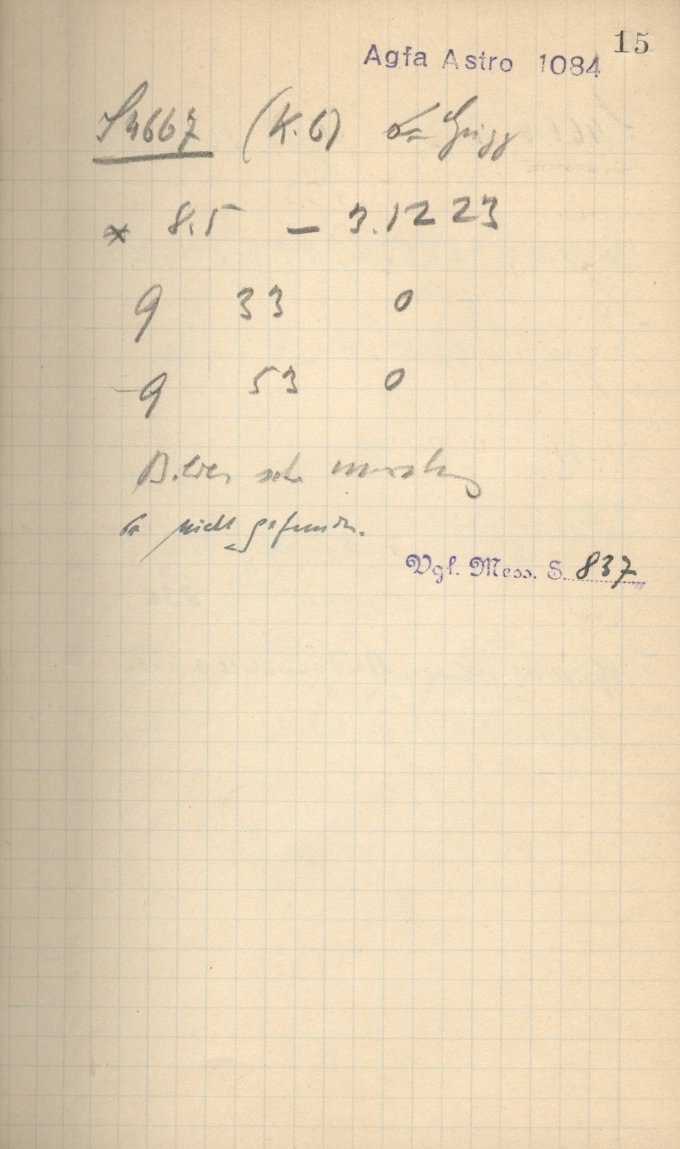 15
Agfa Astro 1084
S4667 (K.6) ☄ Grigg
* 8.5 – 3.1223
9 33 0
9 53 0
Bilder sehr unruhig
☄ nicht gefunden.
Vgl. Mess. S. 837